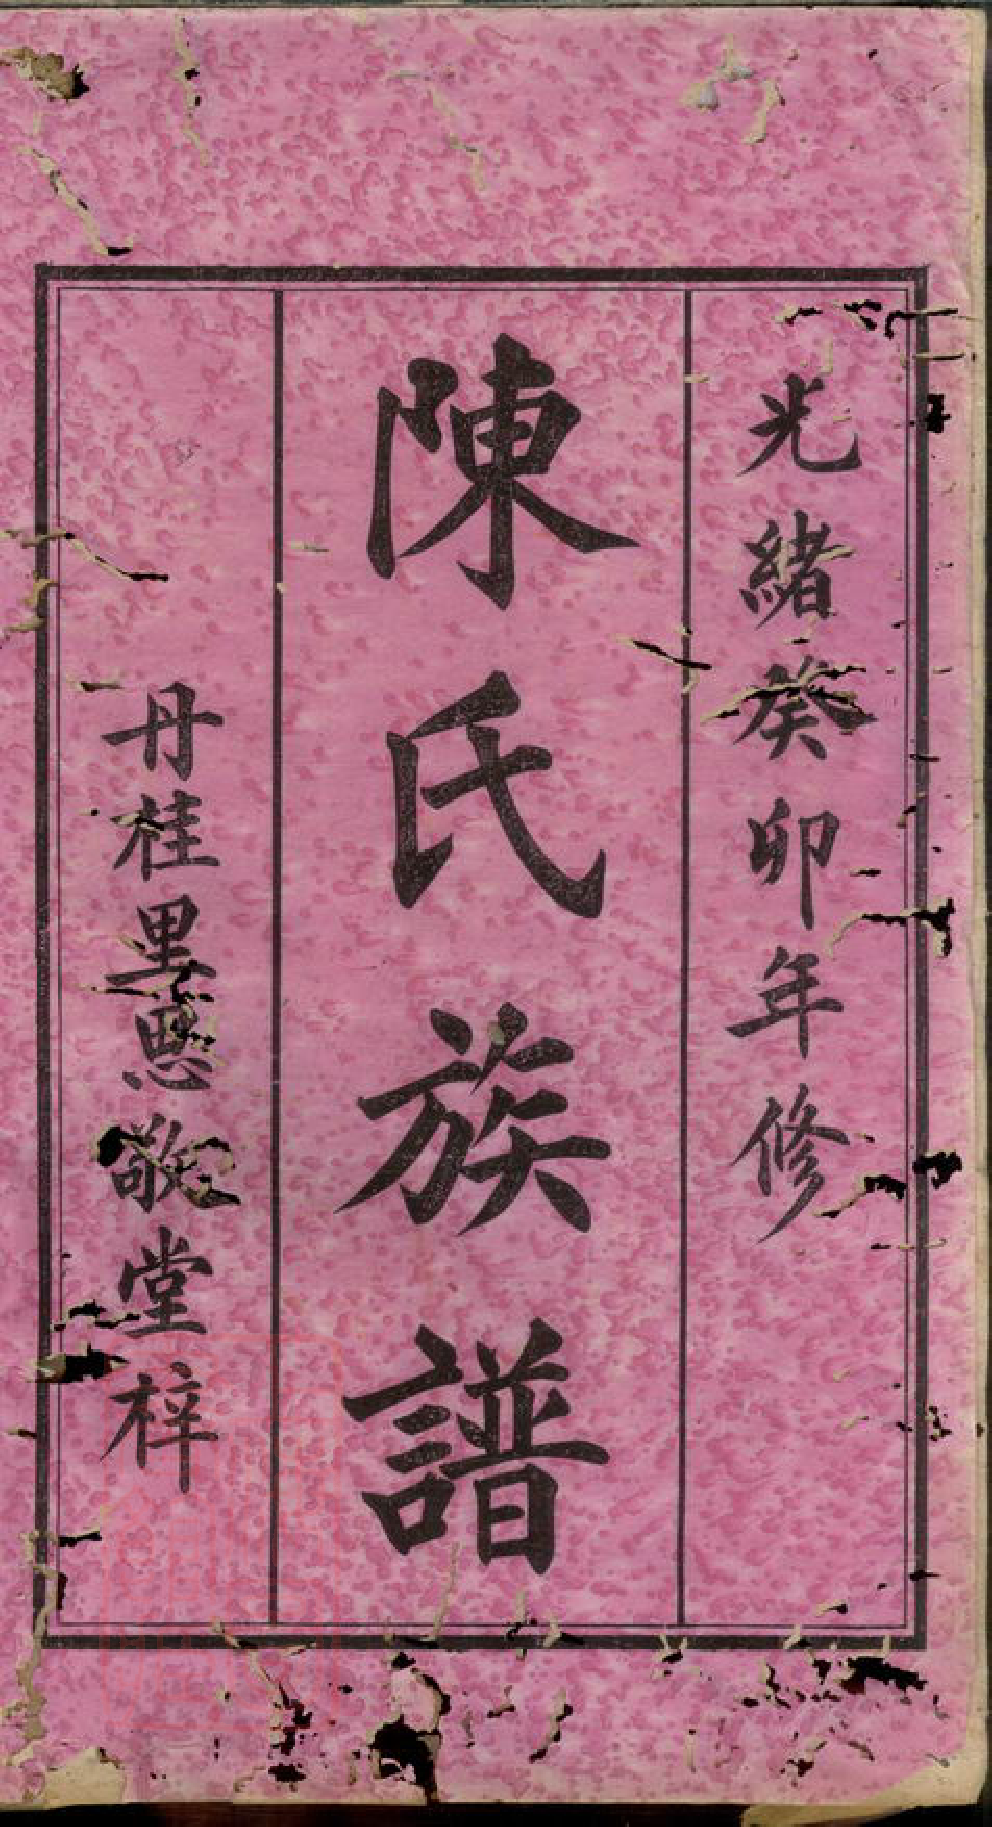 光緒癸卯年修
陳氏族譜
丹桂里思敬堂梓